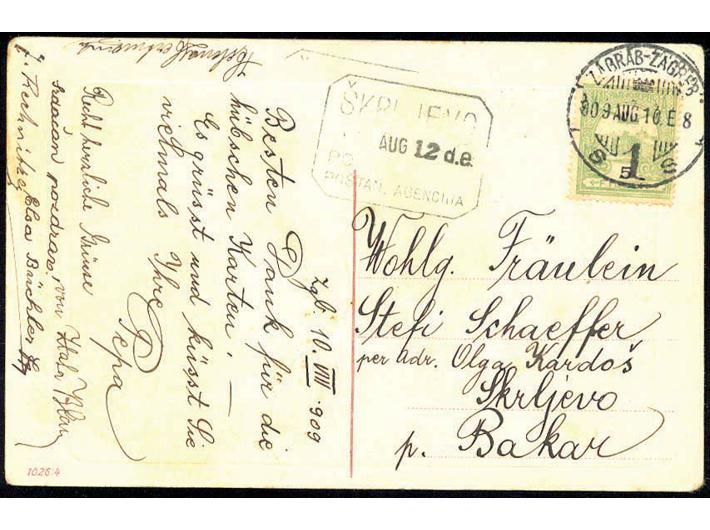 ŠKRLJEVO
AUG 12 d.e.
POŠTAN. AGENCIJA
ZÁGRÁB-ZAGREB
909 AUG 10 E 8
S 1 S
5
Wohlg. Fräulein
Stefi Schaeffer
per adr. Olga Kardoš
Skrljevo
p. Bakar
Zgb. 10. VIII 909
Besten Dank für die
hübschen Karten. —
Es grüsst und küsst Sie
vielmals Ihre
Pepa
Recht herzliche Grüsse
srdačan pozdrav, von
1026.4